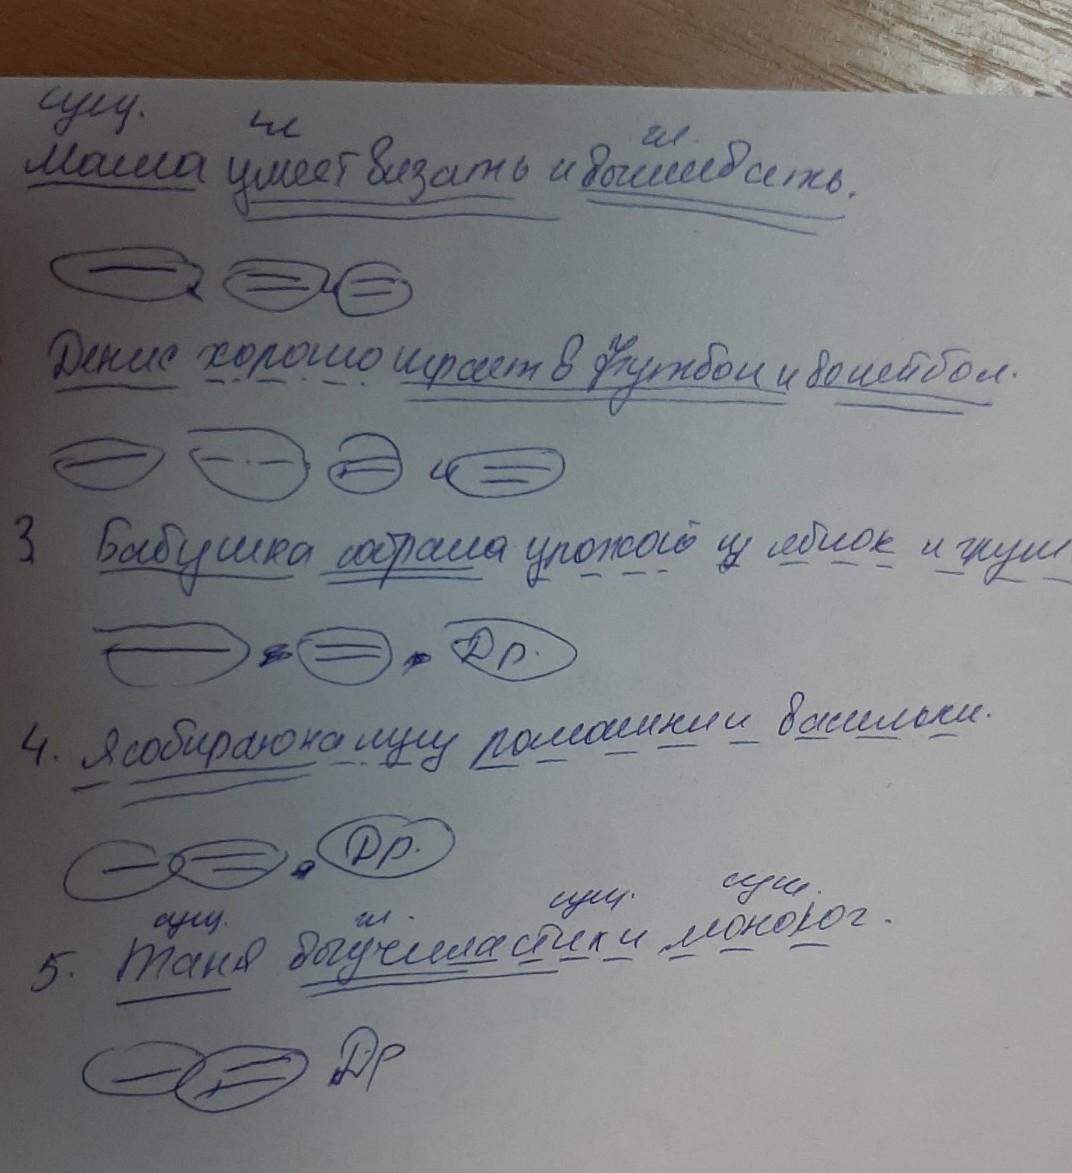 сущ.
гл
гл.
Маша умеет вязать и вышивать.
и
Денис хорошо играет в футбол и волейбол.
и
3 Бабушка собрала урожай из яблок и груш
Др.
4. Я собираю на лугу ромашки и васильки.
Др.
сущ. гл. сущ. сущ.
5. Таня выучила стихи и монолог.
Др